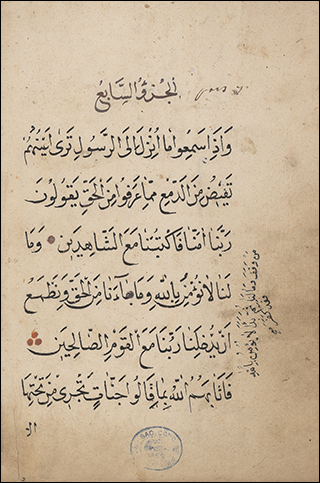 الجزؤ السابع
وَاِذَا سَمِعُوا مَا اُنْزِلَ اِلَى الرَّسُولِ تَرٰى اَعْيُنَهُمْ
تَفِيضُ مِنَ الدَّمْعِ مِمَّا عَرَفُوا مِنَ الْحَقِّ يَقُولُونَ
رَبَّنَا اٰمَنَّا فَاكْتُبْنَا مَعَ الشَّاهِدِينَ وَمَا
لَنَا لَا نُؤْمِنُ بِاللّٰهِ وَمَا جَاءَنَا مِنَ الْحَقِّ وَنَطْمَعُ
اَنْ يُدْخِلَنَا رَبُّنَا مَعَ الْقَوْمِ الصَّالِحِينَ
فَاَثَابَهُمُ اللّٰهُ بِمَا قَالُوا جَنَّاتٍ تَجْرِى مِنْ تَحْتِهَا